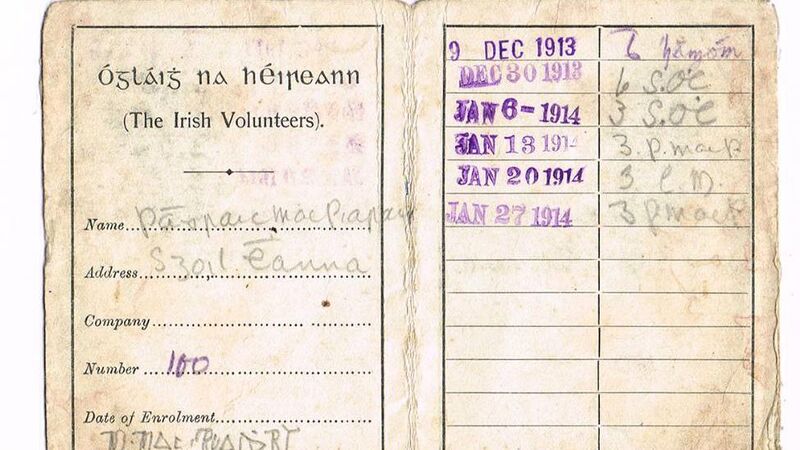 Ógláiġ na hÉireann
(The Irish Volunteers).
Name Pádraic Mac Piarais
Address Sgoil Éanna
Company
Number
Date of Enrolment
9 DEC 1913 6
DEC 30 1913 6 S.Ó'C
JAN 6- 1914 3 S.Ó'C
JAN 13 1914 3
JAN 20 1914 3
JAN 27 1914 3